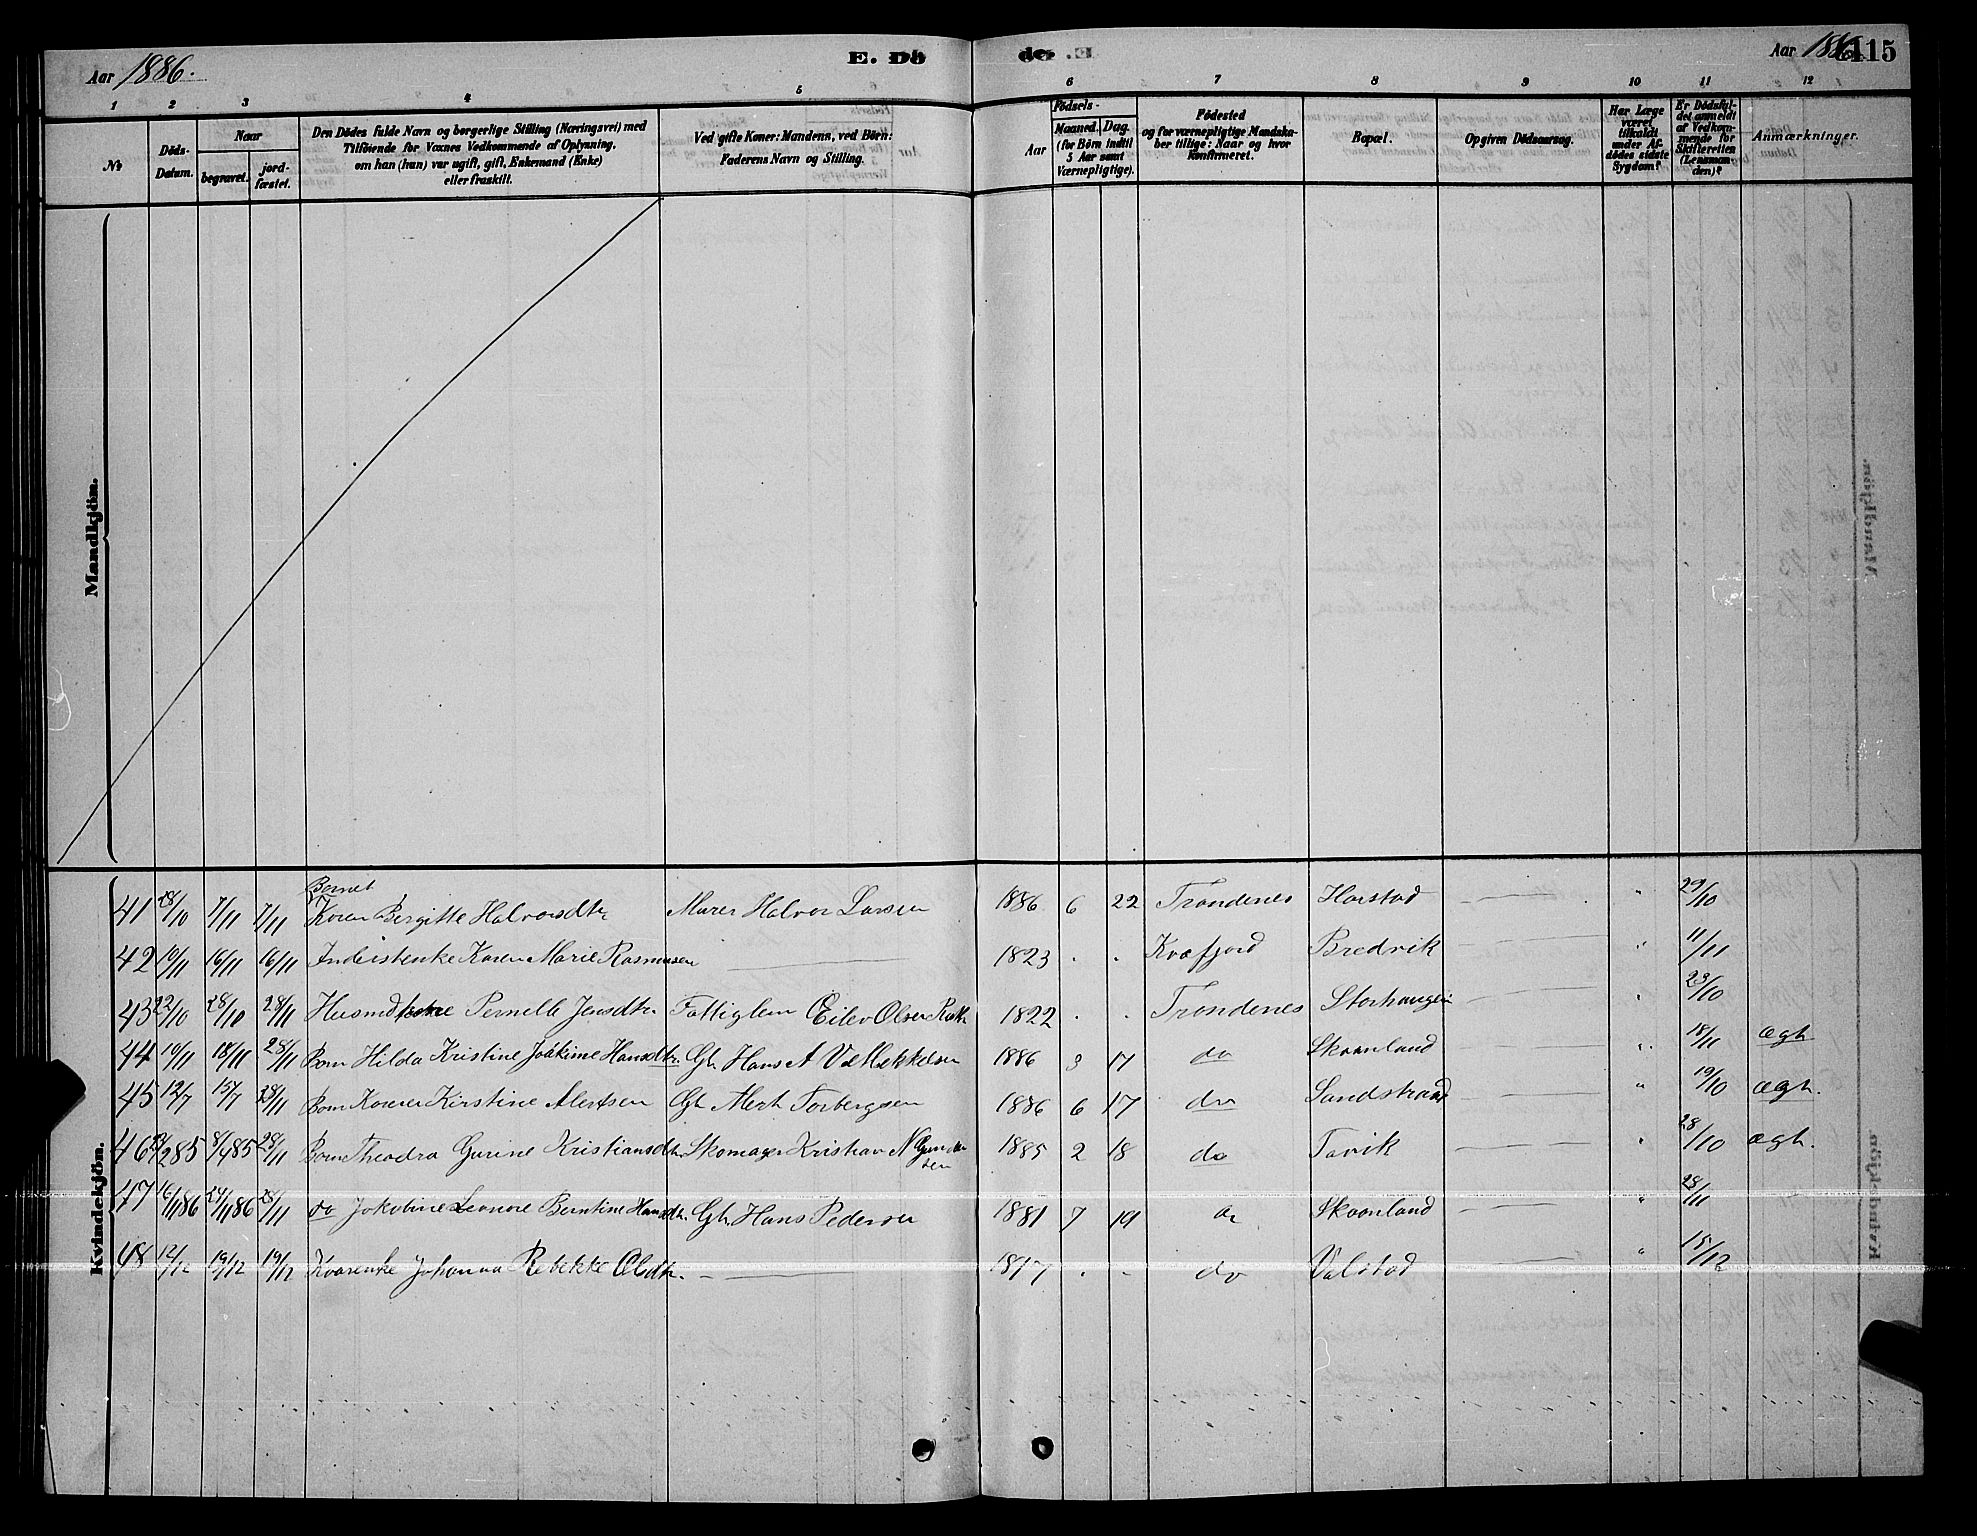 Aar 1886.
E. Dö
de E.
Aar 1886.
115
1 2 3 4 5 6 7 8 9 10 11 12
No
Döds-Datum.
Naar begravet. jord-fæstet.
Den Dödes fulde Navn og borgerlige Stilling (Næringsvei) med
Tilföiende for Voxnes Vedkommende af Oplysning,
om han (hun) var ugift, gift, Enkemand (Enke)
eller fraskilt.
Ved gifte Koner: Mandens, ved Börn:
Faderens Navn og Stilling.
Födsels-
Aar Maaned. Dag.
(for Börn indtil
5 Aar samt
Værnepligtige).
Födested
og for værnepligtige Mandska-
ber tillige: Naar og hvor
konfirmeret.
Bopæl.
Opgiven Dödsaarsag.
Har Læge
været
tilkaldt
under Af-
dödes sidste
Sygdom?
Er Dödsfal-
det anmeldt
af Vedkom-
mende for
Skifteretten
(Lensman-
den)?
Anmærkninger.
Mandkjön.
Kvindekjön.
Barnet
41 28/10 7/11 7/11 Karen Bergitte Halvorsdtr Murer Halvor Larsen 1886 6 22 Trondenes Harstad — " 29/10
42 10/11 16/11 16/11 Inderstenke Karen Marie Rasmusen — 1823 . . Kvæfjord Bredvik — " 11/11
43 22/10 28/10 28/11 Husmdkone Pernelle Jensdtr Fattiglem Eilev Olsen 1822 . . Trondenes Storhaugen — " 23/10
44 10/11 18/11 28/11 Barn Hilda Kristine Joakime Hansdtr. Gbr Hans A 1886 3 17 do Skaanland " 18/11 ægh
45 12/7 15/7 28/11 Barn Karen Kirstine Alertsen Gbr Alert Torbergsen 1886 6 17 do Sandstrand — " 19/10 ægh.
46 /285 8/485 28/11 Barn Theodra Gurine Kristiansdtr. Skomager Kristian N 1885 2 18 do Tovik — " 28/10 ægh.
47 16/1186 24/1186 28/11 do Jakobine Leonore Berntine Hansdtr. Gbr Hans Pedersen 1881 7 19 do Skaanland — " 28/11
48 12/12 19/12 19/12 Kvarenke Johanna Rebekke Olsdtr. — 1817 . . do Valstad — " 15/12